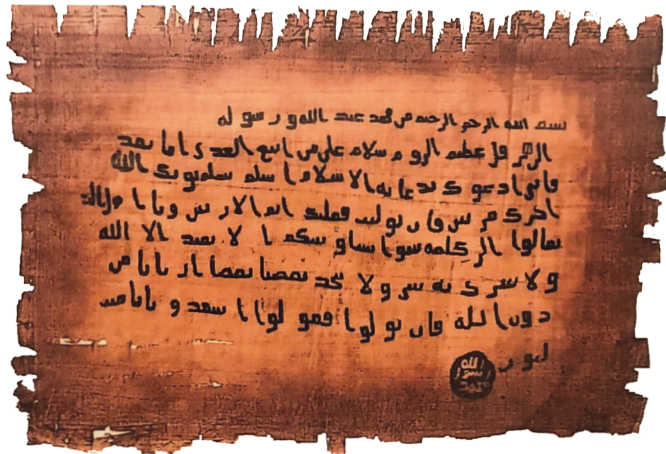 بسم الله الرحمن الرحيم من محمد عبد الله ورسوله
الى هرقل عظيم الروم سلام على من اتبع الهدى اما بعد
فاني ادعوك بدعاية الاسلام اسلم تسلم يوتك الله
اجرك مرتين فان توليت فعليك اثم الاريسين ويا
تعالوا الى كلمة سوا بيننا وبينكم ا لا نعبد الا الله
ولا نشرك به ولا يتخذ بعضنا بعضا اربابا من
دون الله فان تولوا فقولوا اشهدوا بانا مس
لمون
الله
رسول
محمد